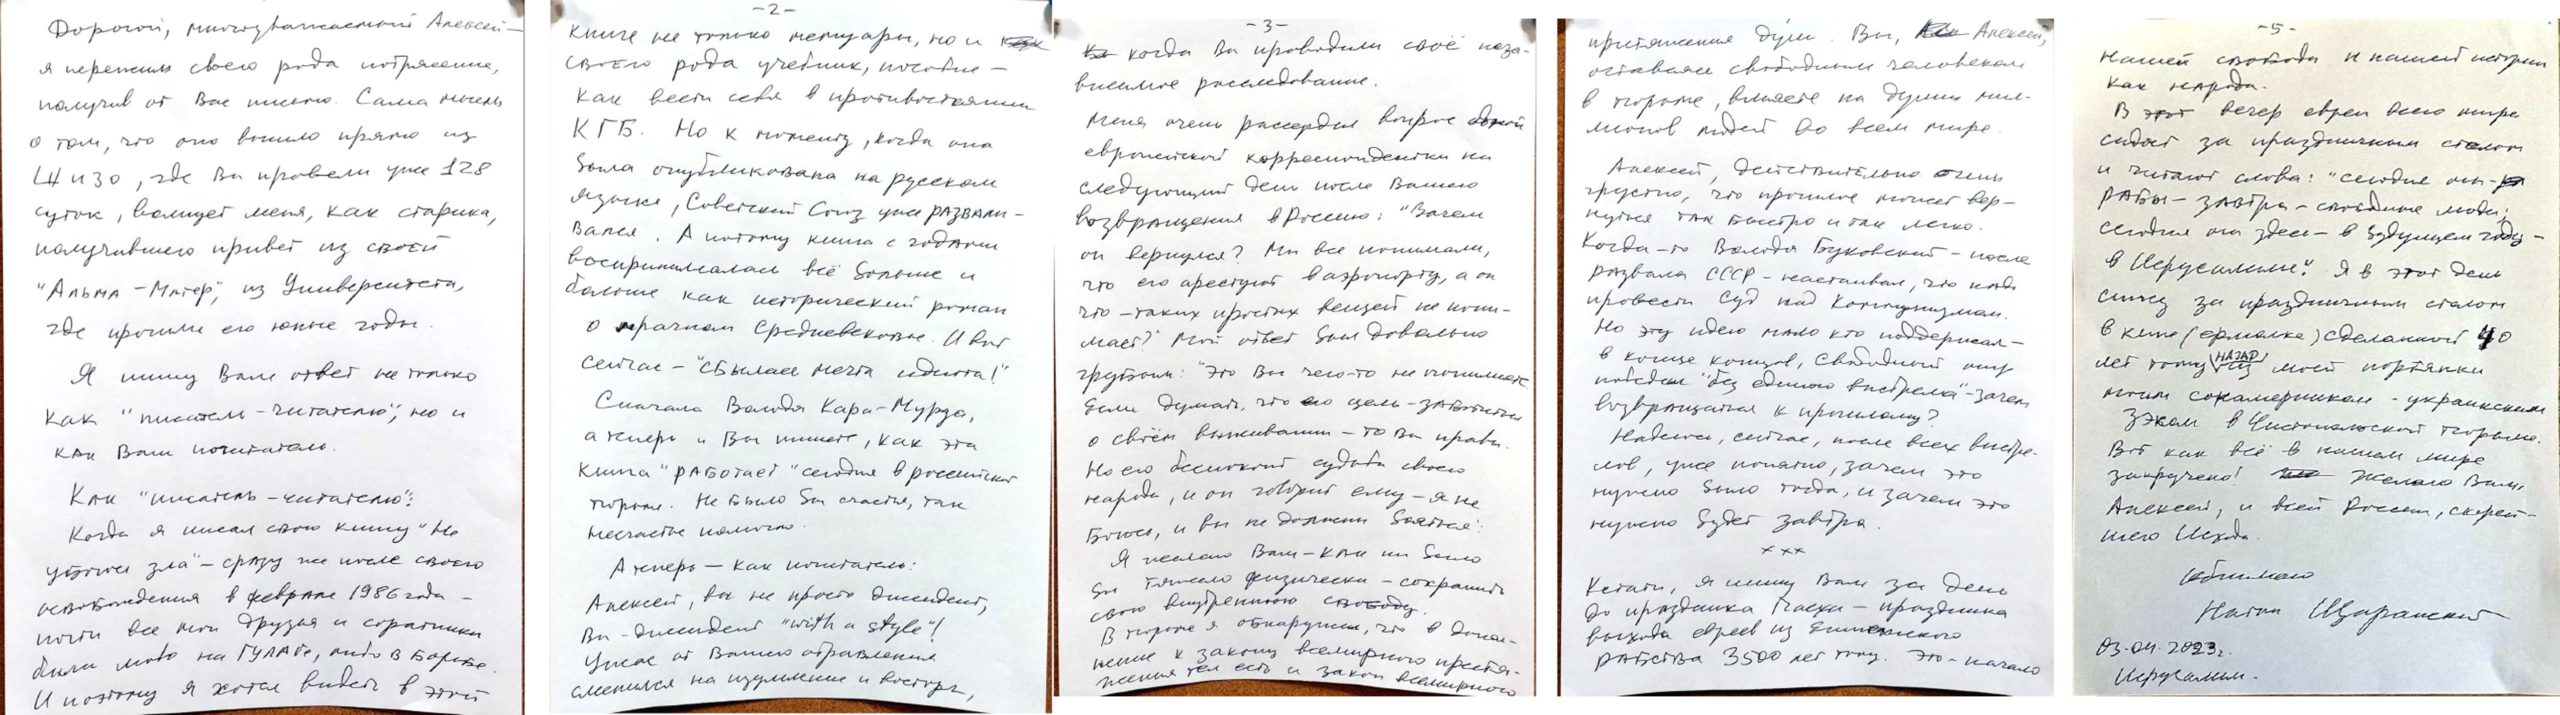 Дорогой, многоуважаемый Алексей –
я пережил своего рода потрясение,
получив от Вас письмо. Сама мысль
о том, что оно вышло прямо из
ШИЗО, где Вы провели уже 128
суток, волнует меня, как старика,
получившего привет из своей
"Альма-Матер", из Университета,
где прошли его юные годы.
Я пишу Вам ответ не только
как "писатель-читателю", но и
как Ваш почитатель.
Как "писатель-читателю":
Когда я писал свою книгу "Не
убоюсь зла" – сразу же после своего
освобождения в феврале 1986 года –
почти все мои друзья и соратники
были либо на ГУЛАГе, либо в Борьбе.
И поэтому я хотел видеть в этой
-2-
книге не только мемуары, но и
своего рода учебник, пособие –
как вести себя в противостоянии
КГБ. Но к моменту, когда она
была опубликована на русском
языке, Советский Союз уже развали-
вался. А потому книга с годами
воспринималась всё больше и
больше как исторический роман
о мрачном Средневековье. И вот
сейчас – "сбылась мечта идиота!"
Сначала Володя Кара-Мурза,
а теперь и Вы пишете, как эта
книга "работает" сегодня в российской
тюрьме. Не было бы счастья, так
несчастье помогло.
А теперь – как почитатель:
Алексей, вы не просто диссидент,
Вы – диссидент "with a style"!
Ужас от Вашего отравления
сменился на изумление и восторг,
-3-
когда Вы проводили своё неза-
висимое расследование.
Меня очень рассердил вопрос одной
европейской корреспондентки на
следующий день после Вашего
возвращения в Россию: "Зачем
он вернулся? Мы все понимали,
что его арестуют в аэропорту, а он
что – таких простых вещей не пони-
мает?" Мой ответ был довольно
грубым: "Это Вы чего-то не понимаете.
Если думать, что его цель – заботиться
о своём выживании – то Вы правы.
Но его беспокоит судьба своего
народа, и он говорит ему – я не
боюсь, и вы не должны бояться".
Я желаю Вам – как ни было
бы тяжело физически – сохранить
свою внутреннюю свободу.
В тюрьме я обнаружил, что в допол-
нение к закону всемирного притя-
жения тел есть и закон всемирного
притяжения душ. Вы, Алексей,
оставаясь свободным человеком
в тюрьме, влияете на души мил-
лионов людей во всем мире.
Алексей, действительно очень
грустно, что прошлое может вер-
нуться так быстро и так легко.
Когда-то Володя Буковский – после
развала СССР – настаивал, что надо
провести Суд над Коммунизмом.
Но эту идею мало кто поддержал –
в конце концов, свободный мир
победил "без единого выстрела" – зачем
возвращаться к прошлому?
Надеюсь, сейчас, после всех выстре-
лов, уже понятно, зачем это
нужно было тогда, и зачем это
нужно будет завтра.
×××
Кстати, я пишу Вам за день
до праздника Пасхи – праздника
выхода евреев из Египетского
рабства 3500 лет тому. Это – начало
-5-
нашей свободы и нашей истории
как народа.
В этот вечер евреи всего мира
сидят за праздничным столом
и читают слова: "сегодня мы –
рабы – завтра – свободные люди;
сегодня мы здесь – в будущем году –
в Иерусалиме". Я в этот день
сижу за праздничным столом
в кипе (ермолке) сделанной 40
лет тому назад из моей портянки
моим сокамерником – украинским
зэком в Чистопольской тюрьме.
Вот как всё в нашем мире
закручено! Желаю Вам,
Алексей, и всей России, скорей-
шего Исхода.
Обнимаю
Натан Щаранский
03.04.2023г.
Иерусалим.